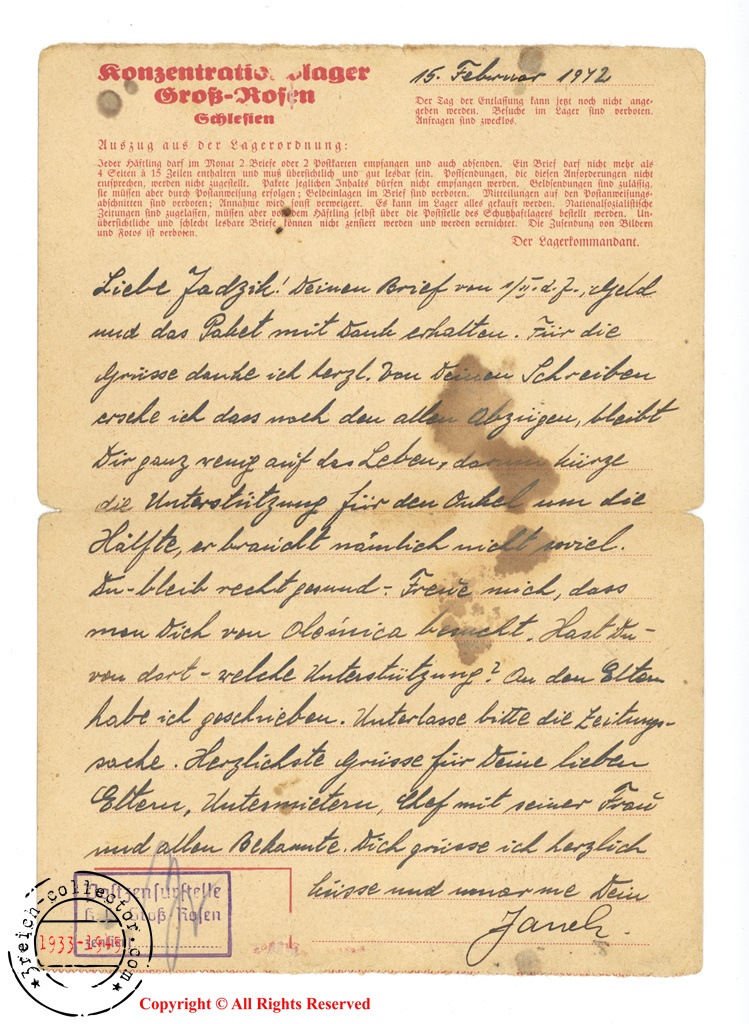 Konzentrationslager
Groß-Rosen
Schlesien
15. Februar 1942
Der Tag der Entlassung kann jetzt noch nicht ange-
geben werden. Besuche im Lager sind verboten.
Anfragen sind zwecklos.
Auszug aus der Lagerordnung:
Jeder Häftling darf im Monat 2 Briefe oder 2 Postkarten empfangen und auch absenden. Ein Brief darf nicht mehr als
4 Seiten à 15 Zeilen enthalten und muß übersichtlich und gut lesbar sein. Postsendungen, die diesen Anforderungen nicht
entsprechen, werden nicht zugestellt. Pakete jeglichen Inhalts dürfen nicht empfangen werden. Geldsendungen sind zulässig,
sie müssen aber durch Postanweisung erfolgen; Geldeinlagen im Brief sind verboten. Mitteilungen auf den Postanweisungs-
abschnitten sind verboten; Annahme wird sonst verweigert. Es kann im Lager alles gekauft werden. Nationalsozialistische
Zeitungen sind zugelassen, müssen aber von dem Häftling selbst über die Poststelle des Schutzhaftlagers bestellt werden. Un-
übersichtliche und schlecht lesbare Briefe können nicht zensiert werden und werden vernichtet. Die Zusendung von Bildern
und Fotos ist verboten.
Der Lagerkommandant.
Liebe Jadzik! Deinen Brief von 1/II. d. J., Geld
und das Paket mit Dank erhalten. Für die
Grüsse danke ich herzl. Von Deinen Schreiben
ersehe ich dass nach den allen Abzügen, bleibt
Dir ganz wenig auf das Leben, darum kürze
die Unterstützung für den Onkel um die
Hälfte, er braucht nämlich nicht soviel.
Du - bleib recht gesund - Freue mich, dass
man Dich von Oleśnica besucht. Hast Du -
von dort - welche Unterstützung? An den Eltern
habe ich geschrieben. Unterlasse bitte die Zeitungs-
sache. Herzlichste Grüsse für Deine lieben
Eltern, Untermietern, Chef mit seiner Frau
und allen Bekannte. Dich grüsse ich herzlich
küsse und umarme Dein
Janek.
Postzensurstelle
K.L. Groß-Rosen
zensiert
3reich-collector.com
1933-1945
Copyright © All Rights Reserved